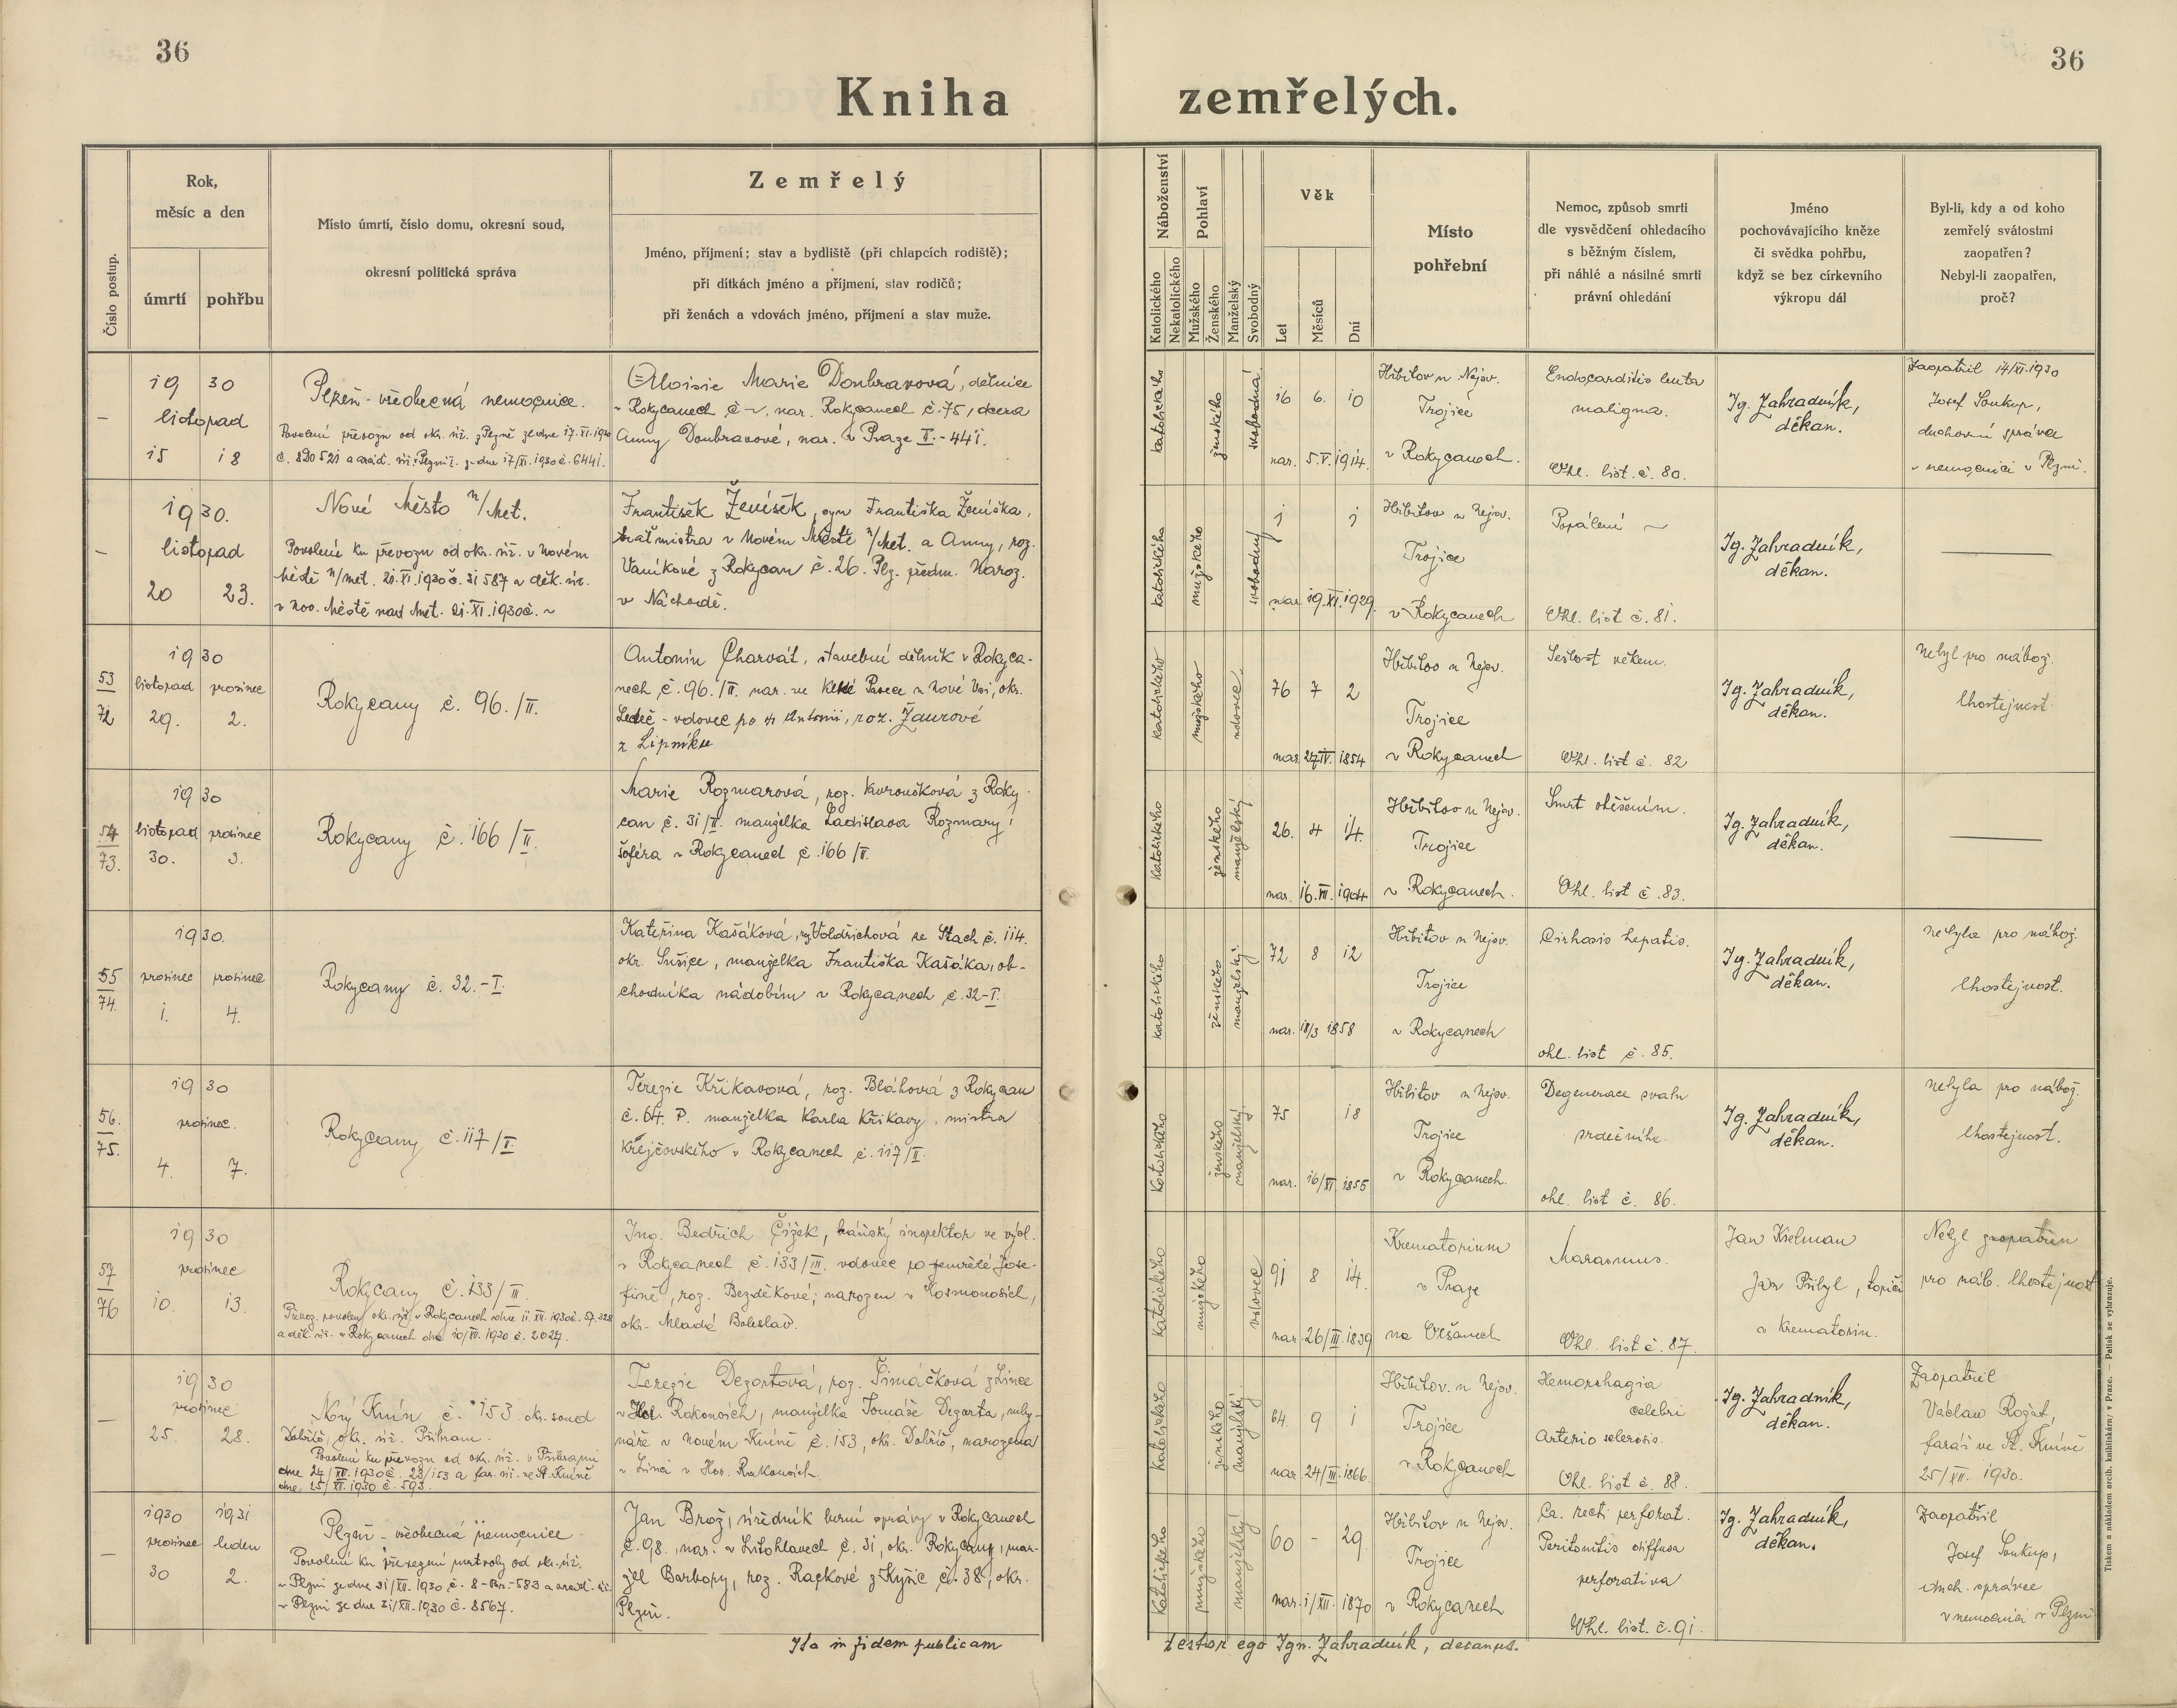 36
36
Kniha zemřelých.
Číslo postup.
Rok,
měsíc a den
úmrtí
pohřbu
Místo úmrtí, číslo domu, okresní soud,
okresní politická správa
Zemřelý
Jméno, příjmení; stav a bydliště (při chlapcích rodiště);
při dítkách jméno a příjmení, stav rodičů;
při ženách a vdovách jméno, příjmení a stav muže.
Náboženství
Katolického
Nekatolického
Pohlaví
Mužského
Ženského
Manželský
Svobodný
Věk
Let
Měsíců
Dní
Místo
pohřební
Nemoc, způsob smrti
dle vysvědčení ohledacího
s běžným číslem,
při náhlé a násilné smrti
právní ohledání
Jméno
pochovávajícího kněze
či svědka pohřbu,
když se bez církevního
výkropu dál
Byl-li, kdy a od koho
zemřelý svátostmi
zaopatřen?
Nebyl-li zaopatřen,
proč?
–
1930
listopad
15 18
Plzeň - všeobecná nemocnice.
Povolení převozu od okr. úř. z Plzně ze dne 17.XI.1930
č. 890521 a arcid. úř. Plzni ze dne 17/XI. 1930 č. 6441.
Aloisie Marie Doubravová, dělnice
v Rokycanech č ~, nar. Rokycanech č. 75, dcera
Anny Doubravové, nar. v Praze II. - 441.
katolického
ženského
svobodná
16 6. 10
nar. 5.V.1914.
Hřbitov u Nejsv.
Trojice
v Rokycanech.
Endocarditis lenta
maligna.
Ohl. list. č. 80.
Ig. Zahradník,
děkan.
Zaopatřil 14/XI.1930
Josef Soukup,
duchovní správce
v nemocnici v Plzni.
–
1930.
listopad
20 23.
Nové Město n/Met.
Povolení ku převozu od okr. úř. v Novém
Městě n/Met. 21.XI.1930 č. 31587 a děk. úř.
v Nov. Městě nad Met. 21.XI.1930 č. ~
František Ženíšek, syn Františka Ženíška,
traťmistra v Novém Městě n/Met. a Anny, roz.
Vaníkové z Rokycan č. 26. Plz. předm. Naroz.
v Náchodě.
katolického
mužského
svobodný
1 1
nar. 19.XI.1929.
Hřbitov u Nejsv.
Trojice
v Rokycanech
Popálení ~
Ohl. list č. 81.
Ig. Zahradník,
děkan.
53
72
1930
listopad prosinec
29. 2.
Rokycany č. 96./II.
Antonín Charvát, stavební dělník v Rokyca-
nech č. 96./II. nar. ve Pasece u Nové Vsi, okr.
Ledeč - vdovec po Antonii, roz. Žaurové
z Lipníku
katolického
mužského
vdovec
76 7 2
nar. 27.IV. 1854
Hřbitov u Nejsv.
Trojice
v Rokycanech
Sešlost věkem.
Ohl. list č. 82
Ig. Zahradník,
děkan.
Nebyl pro nábož.
lhostejnost.
54
73.
1930
listopad prosinec
30. 3.
Rokycany č. 166/II.
Marie Rozmarová, roz. Kvroušková z Roky-
can č. 31/II. manželka Ladislava Rozmary,
šoféra v Rokycanech č. 166/II.
katolického
ženského
manželský
26. 4 14.
nar. 16.VII. 1904
Hřbitov u Nejsv.
Trojice
v Rokycanech.
Smrt oběšením.
Ohl. list č. 83.
Ig. Zahradník,
děkan.
55
74.
1930.
prosinec prosinec
1. 4.
Rokycany č. 32. - I.
Kateřina Kašáková, roz. Voldřichová ze Stach č. 114.
okr. Sušice, manželka Františka Kašáka, ob-
chodníka nádobím v Rokycanech č. 32-I.
katolického
ženského
manželský.
72 8 12
nar. 18/3 1858
Hřbitov u Nejsv.
Trojice
v Rokycanech
Cirhosis hepatis.
ohl. list č. 85.
Ig. Zahradník,
děkan.
Nebyla pro nábož.
lhostejnost.
56.
75.
1930
prosinec.
4. 7.
Rokycany č. 117/I.
Terezie Křikavová, roz. Bláhová z Rokycan
č. 64. P. manželka Karla Křikavy, mistra
krejčovského v Rokycanech č. 117/II.
Katolického
ženského
manželský
75 18
nar. 16/XI. 1855
Hřbitov u Nejsv.
Trojice
v Rokycanech.
Degenerace svalu
srdečního.
ohl. list č. 86.
Ig. Zahradník,
děkan.
nebyla pro nábož.
lhostejnost.
57
76
1930
prosinec
10. 13.
Rokycany č. 133/III.
Převoz povolen okr. úř. v Rokycanech dne 11.XII.1930 č. 57.328
a děk. úř. v Rokycanech dne 10/XII. 1930 č. 2027.
Ing. Bedřich Čížek, báňský inspektor ve výsl.
v Rokycanech č. 133/III. vdovec po zemřelé Jose-
fině, roz. Bezděkové; narozen v Kosmonosích,
okr. Mladá Boleslav.
katolického
mužského
vdovec
91 8 14.
nar. 26/III.1839
Krematorium
v Praze
na Olšanech
Marasmus.
Ohl. list č. 87.
Jan Kielman
Jan Přibyl, topič
v Krematoriu.
Nebyl zaopatřen
pro náb. lhostejnost
–
1930
prosinec
25. 28.
Nový Knín č. 153. okr. soud
Dobříš, okr. úř. Příbram.
Povolení ku převozu od okr. úř. v Příbrami
dne 24/XII. 1930 č. 23/153 a far. úř. ve St. Kníně
dne 25/XII. 1930 č. 593.
Terezie Dezortová, roz. Šimáčková z Lince
v Hor. Rakousích, manželka Tomáše Dezorta, mly-
náře v Novém Kníně č. 153, okr. Dobříš, narozena
v Linci v Hor. Rakousích.
katolického
ženského
manželský.
64. 9 1
nar. 24/III.1866.
Hřbitov. u Nejsv.
Trojice
v Rokycanech
Hemorrhagia
celebri
Arterio sclerosis.
Ohl. list č. 88.
Ig. Zahradník,
děkan.
Zaopatřil
Václav Rožat,
farář ve St. Kníně
25/XII. 1930.
–
1930 1931
prosinec leden
30 2.
Plzeň - všeobecná nemocnice
Povolení ku převezení mrtvoly od okr. úř.
v Plzni ze dne 31/XII. 1930 č. 8-583 a arcid. úř.
v Plzni ze dne 31/XII. 1930 č. 8567.
Jan Brož, úředník berní správy v Rokycanech
č. 98., nar. v Litohlavech č. 31, okr. Rokycany, man-
žel Barbory, roz. Rackové z Kyšic č. 38, okr.
Plzeň.
katolického
mužského
manželský
60 - 29.
nar. 1/XII. 1870
Hřbitov u Nejsv.
Trojice
v Rokycanech
Ca. recti perforat.
Peritonitis diffusa
perforativa
Ohl. list. č. 91.
Ig. Zahradník,
děkan.
Zaopatřil
Josef Soukup,
duch. správce
v nemocnici v Plzni
Ita in fidem publicam
testor ego Ign. Zahradník, decanus.
Tiskem a nákladem arcib. knihtiskárny v Praze. — Patisk se vyhrazuje.